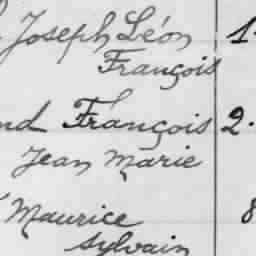 Joseph Léon 1.
François
nd François 2.
Jean Marie
Maurice 8
Sylvain